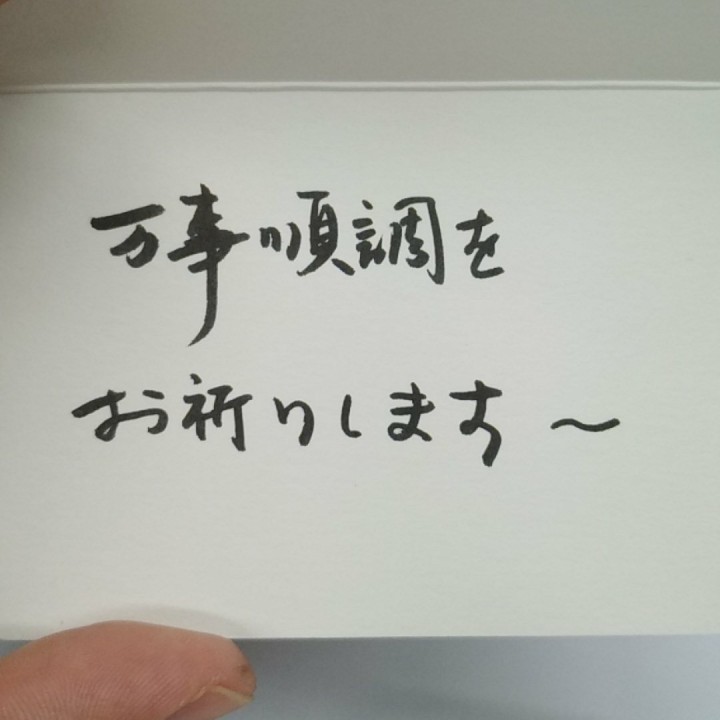 万事順調を
お祈りします〜